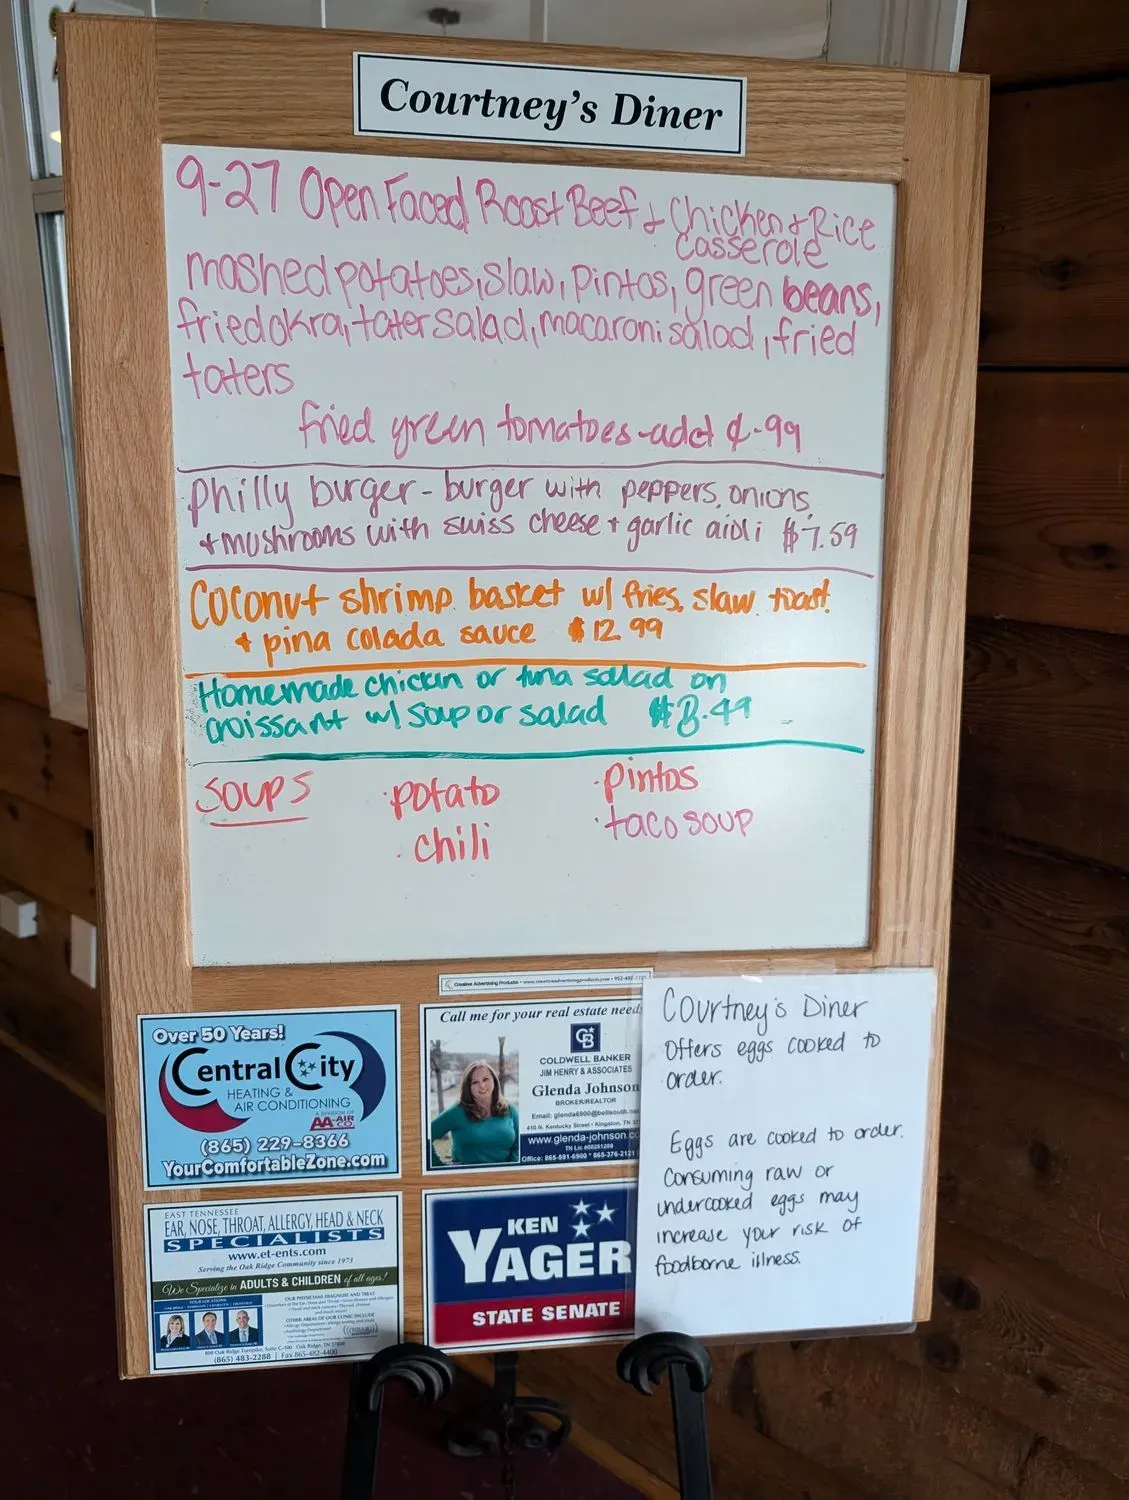 Courtney's Diner
9-27 Open Faced Roast Beef + Chicken + Rice
casserole
mashed potatoes, slaw, pintos, green beans,
fried okra, tater salad, macaroni salad, fried
taters
fried green tomatoes - add ¢.99
Philly burger - burger with peppers, onions,
+ mushrooms with swiss cheese + garlic aioli $7.59
Coconut shrimp basket w/ fries, slaw, toast
+ pina colada sauce $12.99
Homemade chicken or tuna salad on
croissant w/ soup or salad $8.49
Soups
· potato
· pintos
· chili
· taco soup
Creative Advertising Products • www.creativeadvertisingproducts.com •
Over 50 Years!
Central City
HEATING &
AIR CONDITIONING
A DIVISION OF
AA-AIR
CO.
(865) 229-8366
YourComfortableZone.com
Call me for your real estate need
CB
COLDWELL BANKER
JIM HENRY & ASSOCIATES
Glenda Johnson
BROKER/REALTOR
Email: glenda6900@bellsouth.ne
410 N. Kentucky Street • Kingston, TN
www.glenda-johnson.co
TN Lic #00251289
Office: 865-591-6900 * 865-376-2121
EAST TENNESSEE
EAR, NOSE, THROAT, ALLERGY, HEAD & NECK
SPECIALISTS
www.et-ents.com
Serving the Oak Ridge Community since 1973
We Specialize in ADULTS & CHILDREN of all ages!
FOUR LOCATIONS
OUR PHYSICIANS DIAGNOSE AND TREAT
OTHER AREAS OF OUR CLINIC INCLUDE
800 Oak Ridge Turnpike, Suite C-100 Oak Ridge, TN 37830
(865) 483-2288 | Fax 865-482-4400
KEN
YAGER
STATE SENATE
Courtney's Diner
Offers eggs cooked to
order.
Eggs are cooked to order.
Consuming raw or
undercooked eggs may
increase your risk of
foodborne illness.